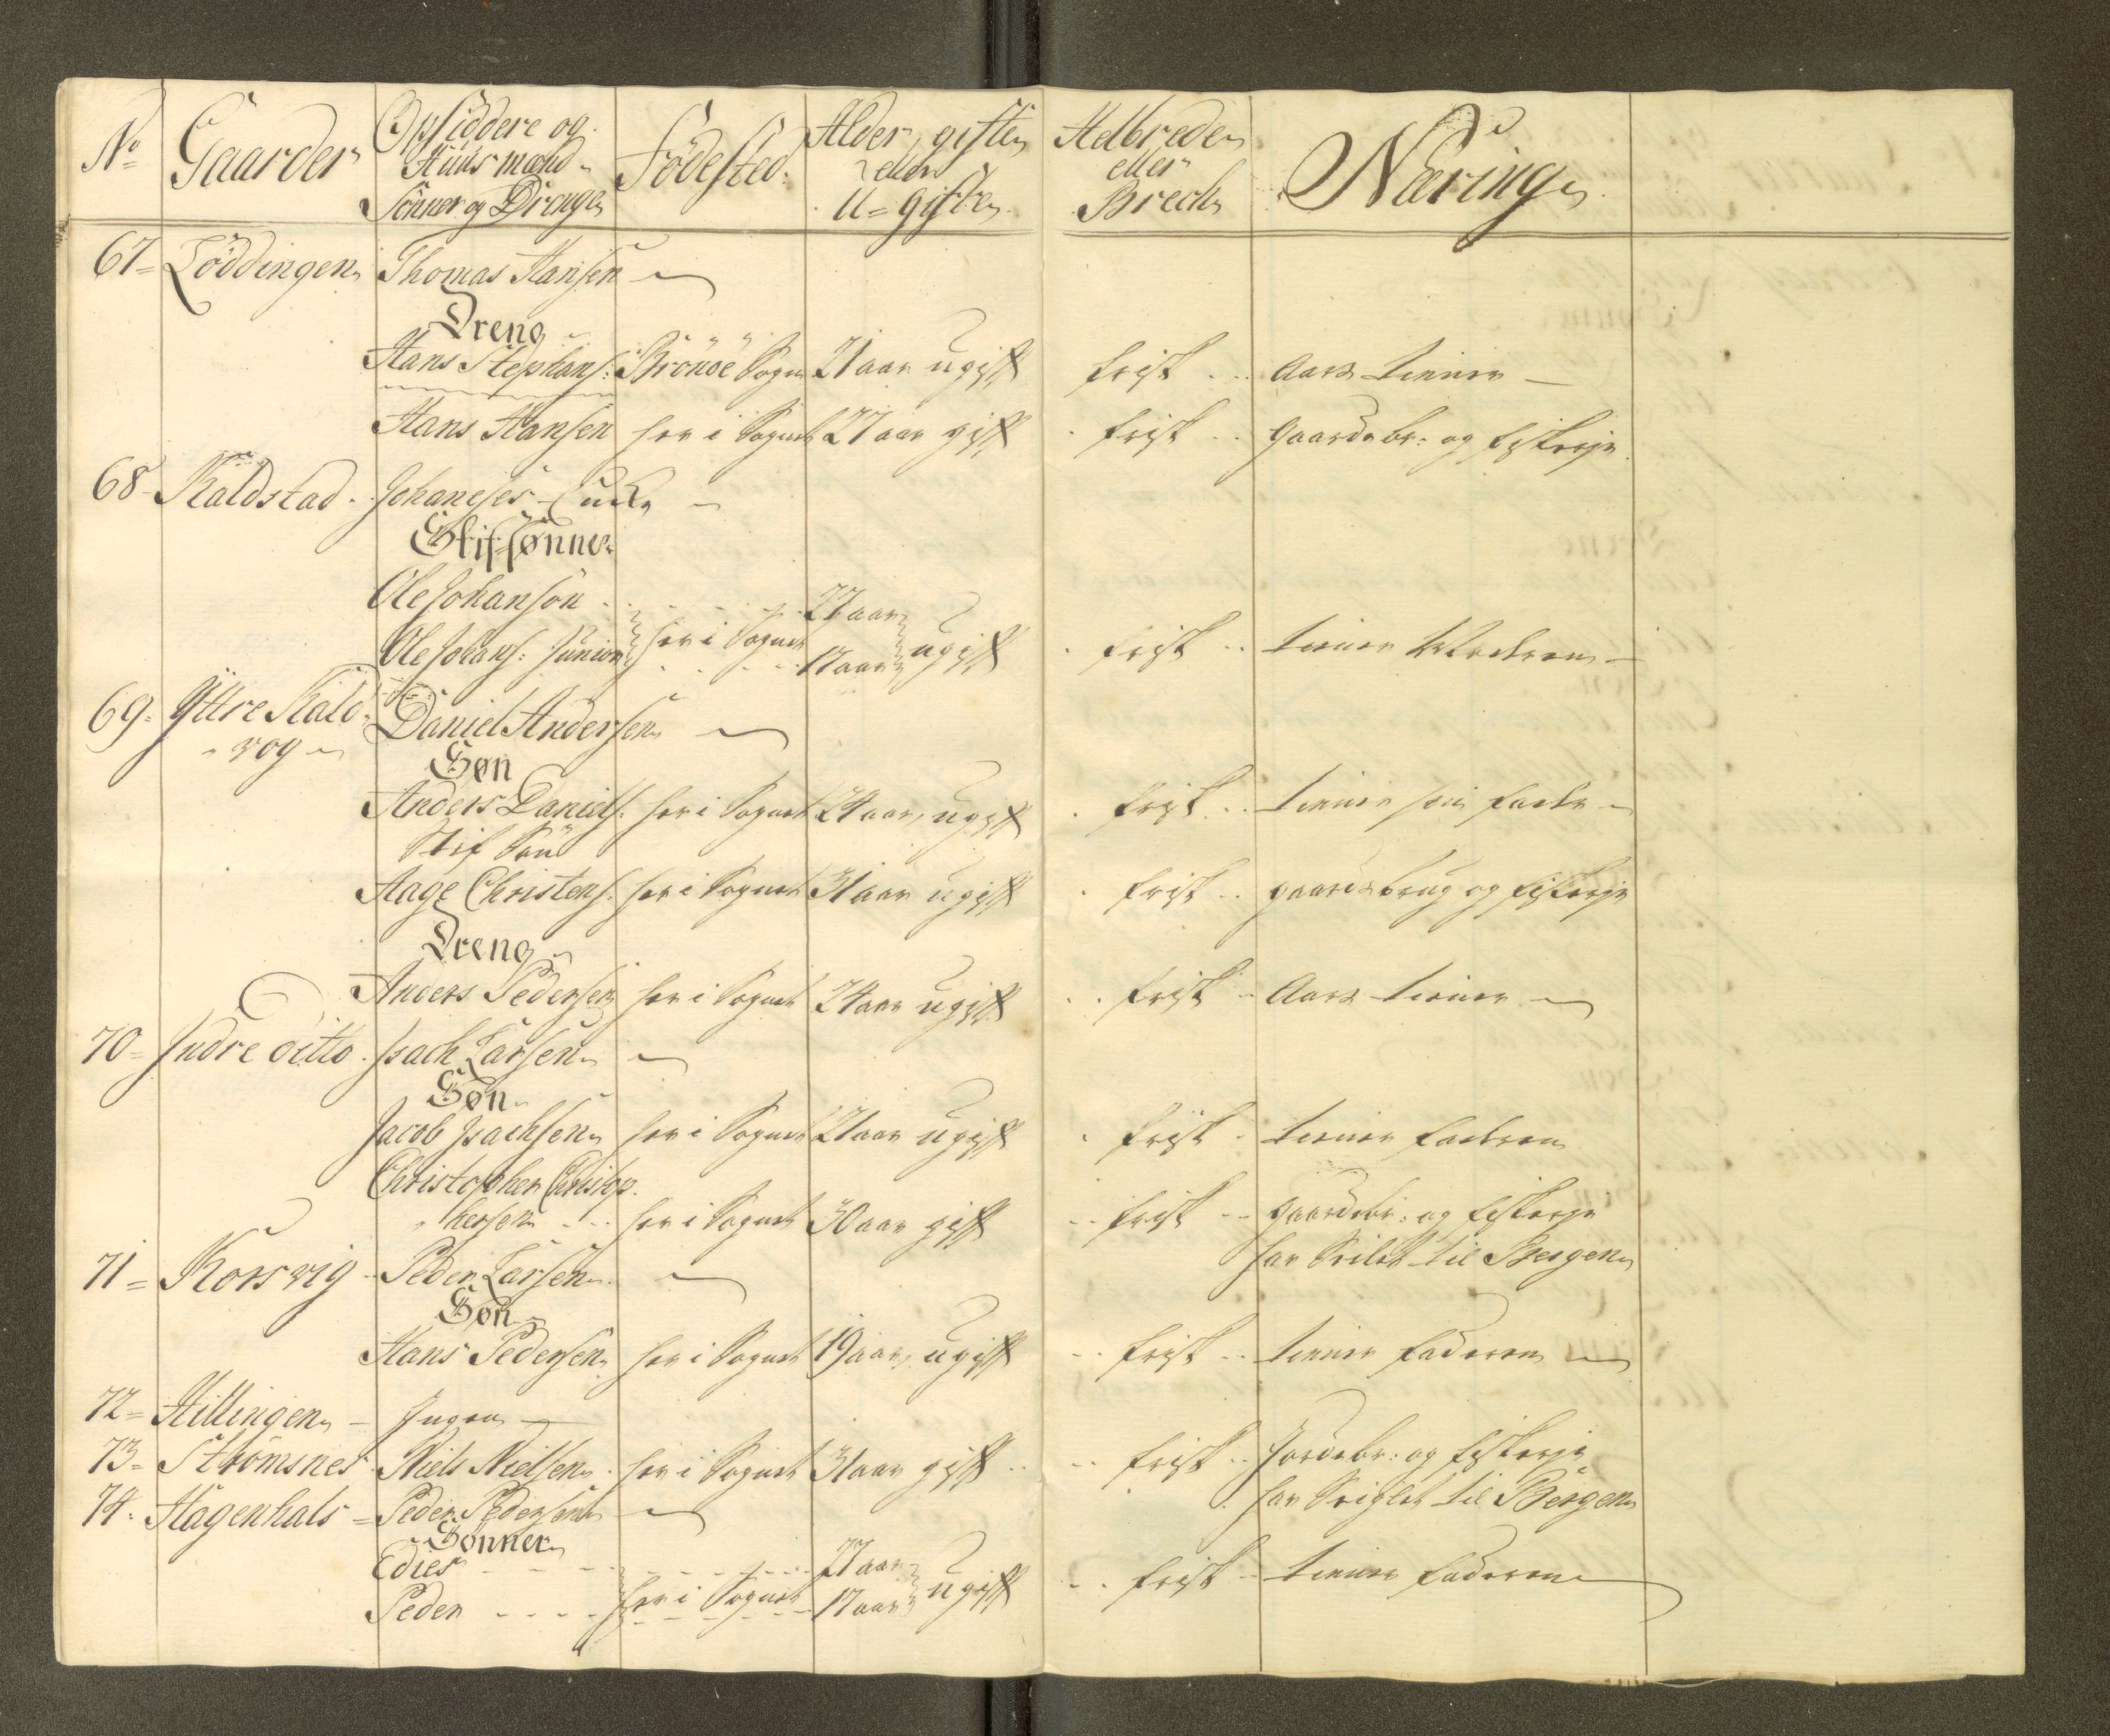 No Gaarder Opsiddere og Huusmænd Sönner og Drenge Födested: Alder, giften eller U=giften Helbreden eller Brech Næring
67= Löddingen Thomas Hansen
Dreng
Hans Stephans: Brönöe Sogn 21 aar ugift frisk .. Aars tiener
Hans Hansen her i Sognet 27 aar gift frisk .. Gaardebr: og fiskerje
68 Kaldstad Johannes
Stifsønner
Ole Johansön 27 aar
Ole Johans: Junior her i Sognet 17 aar ugift frisk .. tiener
69= Yttre Kald=
vog Daniel Andersen
Søn
Anders Daniels: her i Sognet 24 aar, ugift frisk .. tiener sin Fader
Stif Sön
Aage Christens: her i Sognet 31 aar ugift frisk .. gaardsbrug og fiskerje
Dreng
Anders Pedersen her i Sognet 24 aar ugift .. frisk Aars tiener
70= Indre ditto Isach Larsen
Søn
Jacob Isachsen her i Sognet 21 aar ugift frisk tiener faderen
Christopher Christop
hersen her i Sognet 30 aar gift .. frisk .. gaardebr: og fiskerje
har Seilet til Bergen
71= Korsvig Peder Larsen
Søn
Hans Pedersen her i Sognet 19 aar, ugift .. frisk .. tiener faderen
72= Hillingen Ingen
73= Strömsnes Niels Nielsen her i Sognet 31 aar gift .. frisk .. Jordebr: og fiskerje
har Seiglet til Bergen
74= Hagenhals = Peder Pedersen
Sønner
Edies 27 aar
Peder her i Sognet 17 aar ugift .. frisk tiener faderen